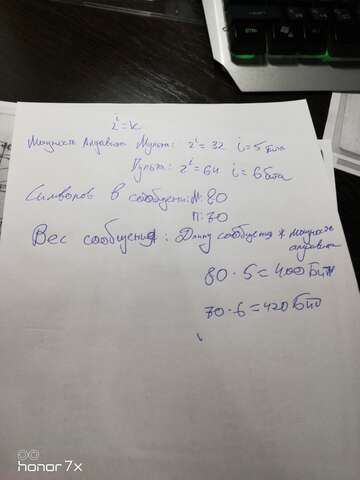 2ⁱ=k
Мощность алфавита Мульти: 2ⁱ = 32 i = 5 бита
Пульти: 2ⁱ = 64 i = 6 бита
Символов в сообщении М: 80
П: 70
Вес сообщения: Длину сообщения * мощность
алфавита
80 · 5 = 400 Бит
70 · 6 = 420 Бит
honor 7x